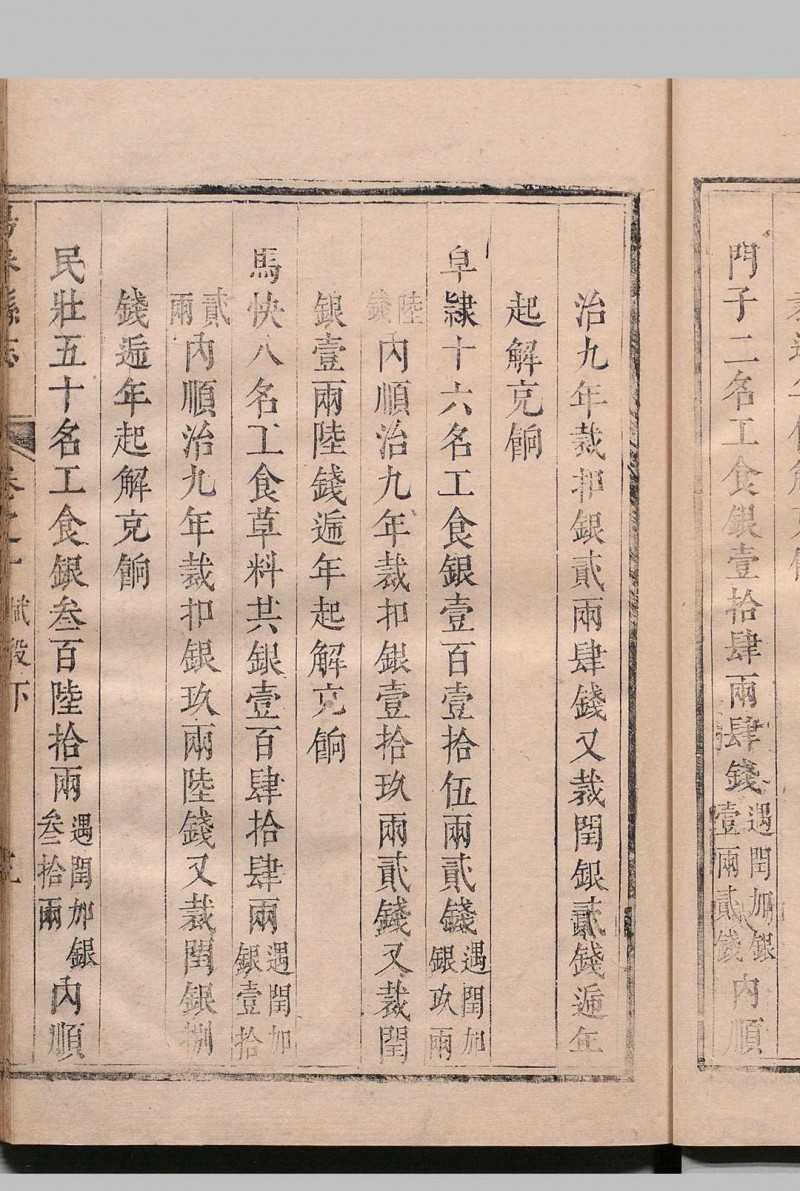 門子二名工食銀壹拾肆兩肆錢遇閏加銀壹兩貳錢內順
治九年裁扣銀貳兩肆錢又裁閏銀貳錢遞年
起解充餉
皁隷十六名工食銀壹百壹拾伍兩貳錢遇閏加銀玖兩
陸錢內順治九年裁扣銀壹拾玖兩貳錢又裁閏
銀壹兩陸錢遞年起解充餉
馬快八名工食草料共銀壹百肆拾肆兩遇閏加銀壹拾
貳兩內順治九年裁扣銀玖兩陸錢又裁閏銀捌
錢遞年起解充餉
民壯五十名工食銀叁百陸拾兩遇閏加銀叁拾兩內順
縣志 卷之十 賦役下